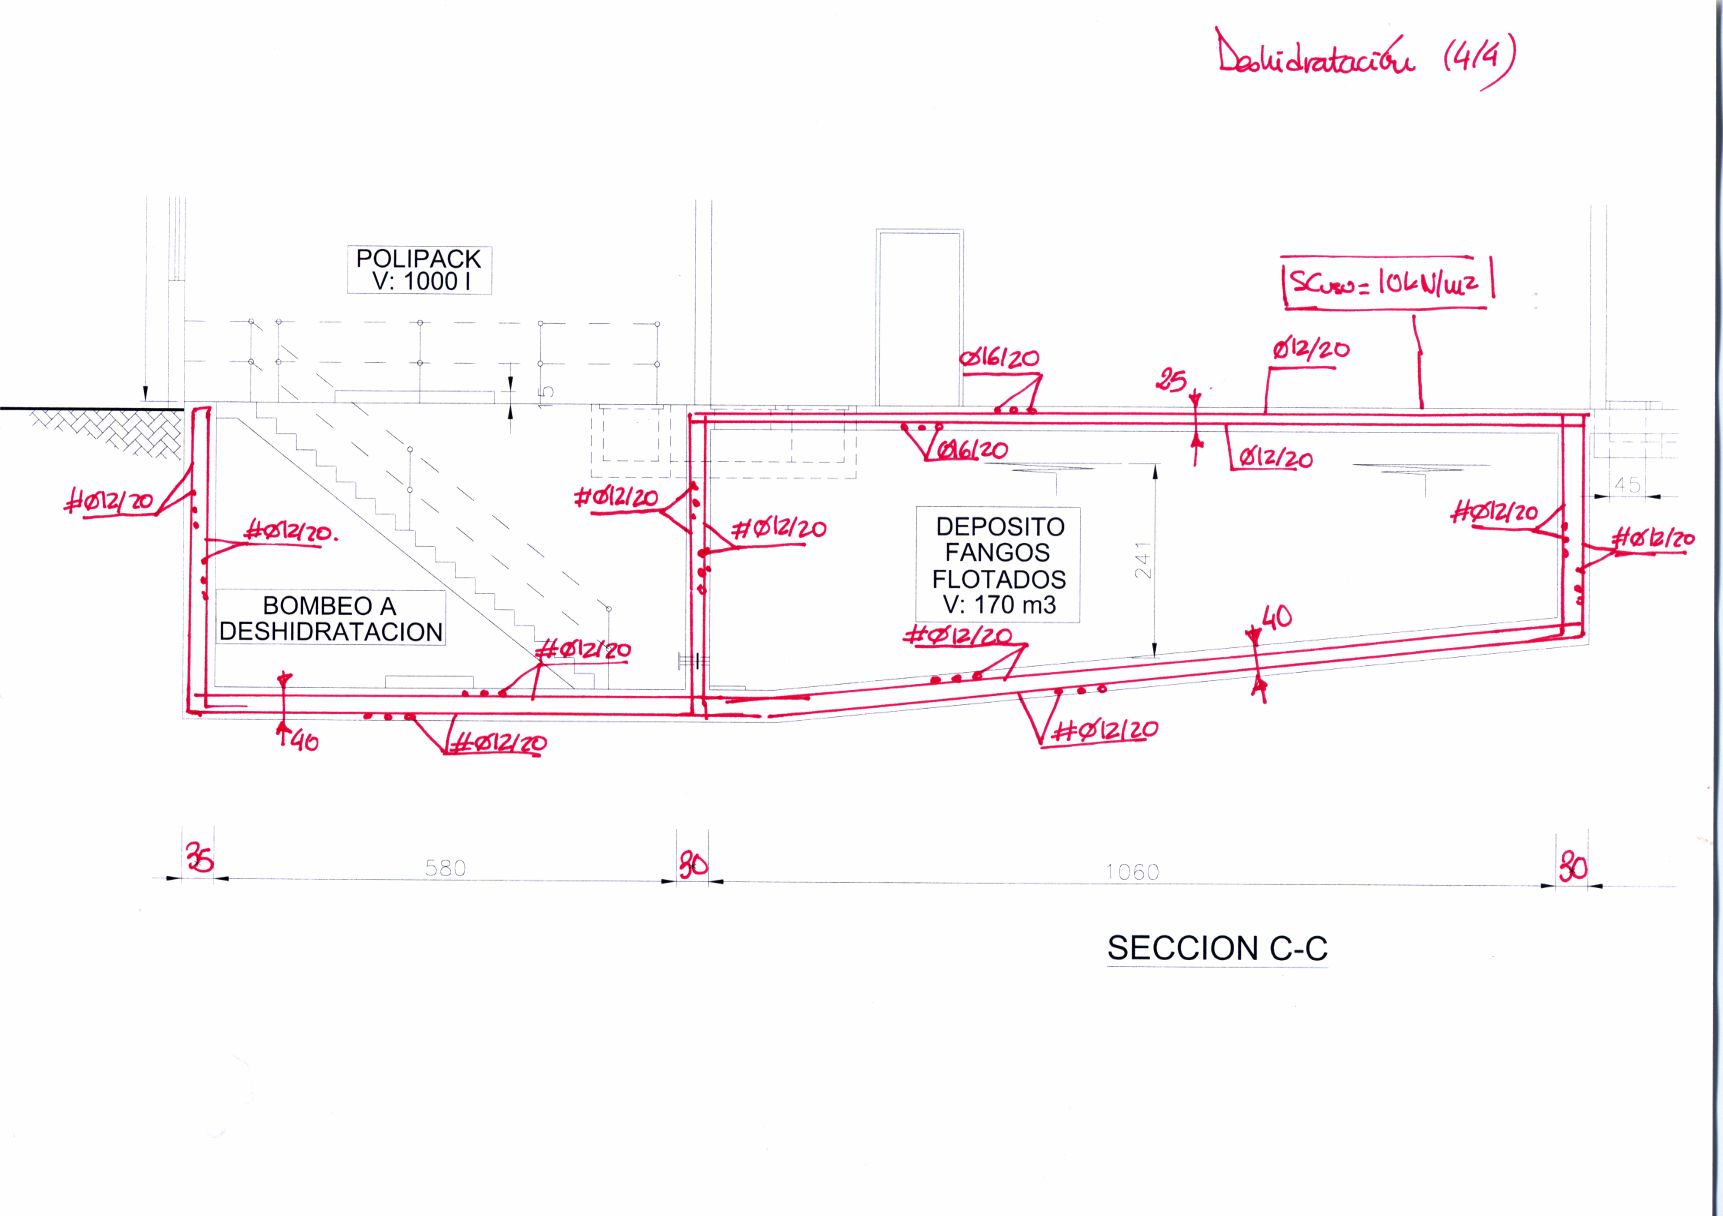 Deshidratación (4/4)
POLIPACK
V: 1000 l
SCuso = 10kN/m2
Ø16/20
Ø12/20
25
15
Ø16/20
Ø12/20
45
#Ø12/20
#Ø12/20
#Ø12/20
#Ø12/20.
#Ø12/20
#Ø12/20
DEPOSITO
FANGOS
FLOTADOS
V: 170 m3
241
BOMBEO A
DESHIDRATACION
#Ø12/20
#Ø12/20
40
40
#Ø12/20
#Ø12/20
35
580
30
1060
30
SECCION C-C